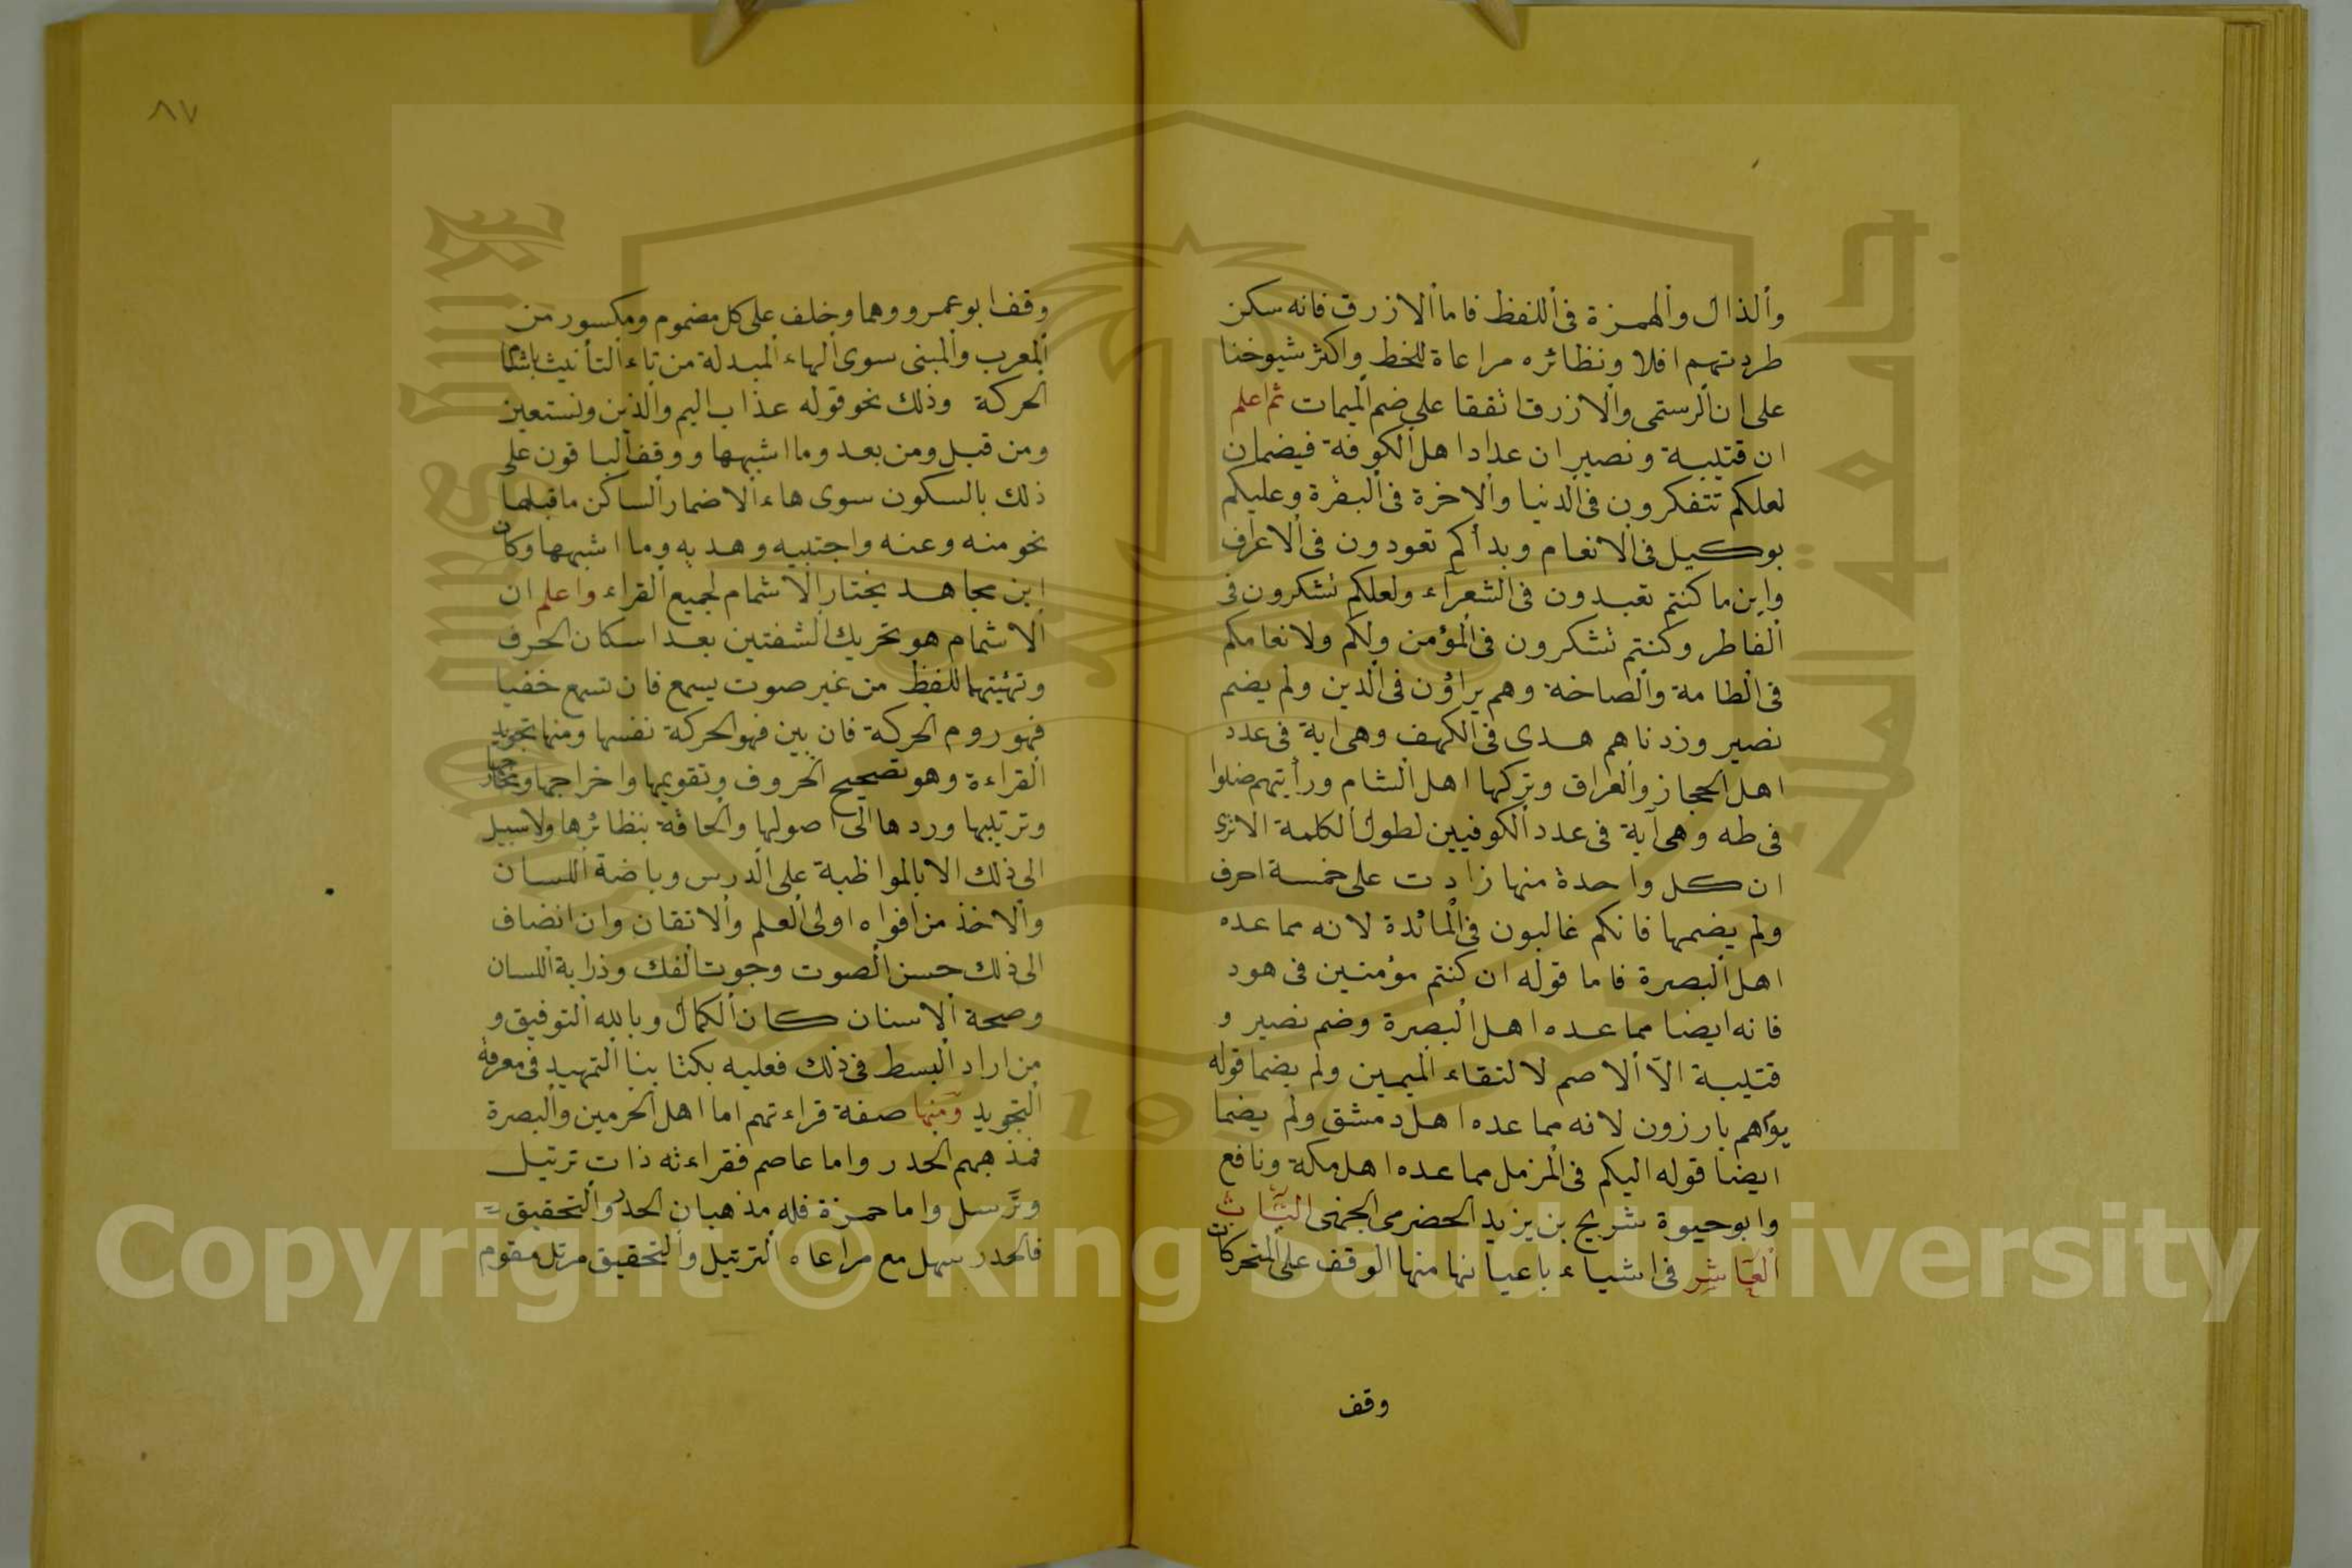 وألذال وألهمزة فى أللفظ فاما ألازرق فانه سكن
طردتهم افلا ونظائره مراعاة للخط واكثر شيوخنا
على ان ألرستمى وألازرق اتفقا على ضم ألميمات ثم اعلم
ان قتيبة ونصير ان عدادا هل ألكوفة فيضمان
لعلكم تتفكرون فى ألدنيا وألاخرة فى ألبقرة وعليكم
بوكيل فى ألانعام وبدأكم تعودون فى ألاعراف
واين ما كنتم تعبدون فى الشعرآء ولعلكم تشكرون فى
ألفاطر وكنتم تشكرون فى ألمؤمن ولكم ولانعامكم
فى ألطامة وألصاخة وهم يراؤن فى ألدين ولم يضم
نصير وزدناهم هدى فى الكهف وهى اية فى عدد
اهل الحجاز وألعراق وتركها اهل ألشام ورأيتهم ضلوا
فى طه وهى آية فى عدد ألكوفيين لطول ألكلمة الاترى
ان كل واحدة منها زادت على خمسة احرف
ولم يضمها فانكم غالبون فى ألمائدة لانه مما عده
اهل ألبصرة فاما قوله ان كنتم مؤمنين فى هود
فانه ايضا مما عده اهل ألبصرة وضم نصير و
قتيبة الآ ألاصم لالتقاء ألميمين ولم يضما قوله
يوم هم بارزون لانه مما عده اهل دمشق ولم يضما
ايضا قوله اليكم فى ألمزمل مما عده اهل مكة ونافع
وابوحيوة شريح بن يزيد الحضرمى الجمهى
ألعاشر فى اشياء باعيانها منها الوقف على ألمتحركات
وقف
٨٧
وقف ابو عمرو وهما وخلف على كل مضموم ومكسور من
ألمعرب وألمبنى سوى ألهاء ألمبدلة من تاء ألتأنيث باشمام
الحركة وذلك نحو قوله عذاب اليم وألذين ونستعين
ومن قبل ومن بعد وما اشبهها ووقف ألباقون على
ذلك بالسكون سوى هاء ألاضمار ألساكن ما قبلها
نحو منه وعنه واجتبيه وهديه وما اشبهها وكان
ابن مجاهد يختار ألاشمام لجميع ألقراء واعلم ان
ألاشمام هو تحريك ألشفتين بعد اسكان الحرف
وتهيئتهما للفظ من غير صوت يسمع فان تسمع خفيا
فهو روم الحركة فان بين فهو الحركة نفسها ومنها تجويد
ألقراءة وهو تصحيح الحروف وتقويمها واخراجها
وترتيبها وردها الى اصولها وألحاقه بنظائرها ولا سبيل
الى ذلك الا بالمواظبة على ألدرس وباضة أللسان
وألاخذ من افواه اولى ألعلم وألاتقان وان انضاف
الى ذلك حسن ألصوت وجوت ألفك وذرابة أللسان
وصحة ألاسنان كان ألكمال وبالله ألتوفيق و
من اراد ألبسط فى ذلك فعليه بكتابينا ألتمهيد فى معرفة
ألتجويد ومنها صفة قراءتهم اما اهل الحرمين وألبصرة
فمذهبهم الحدر واما عاصم فقراءته ذات ترتيل
وترسل واما حمزة فله مذهبان الحدر وألتحقيق
فالحدر سهل مع مراعاه ألترتيل وألتحقيق مرتل مقوم
جامعة الملك سعود
King Saud University
195
Copyright © King Saud University